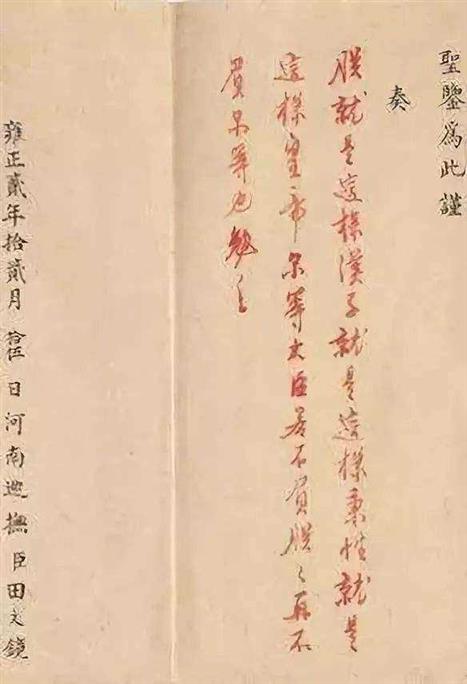 聖鑒爲此謹
奏
朕就是這樣漢子就是這樣秉性就是
這樣皇帝尔等大臣若不負朕〻再不
負尔等也勉之
雍正貳年拾貳月拾伍日河南巡撫臣田文鏡